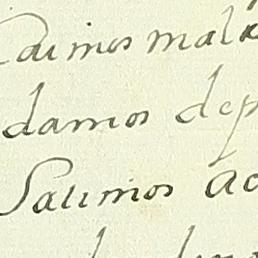 Caimos mala
damos dep
Salimos ac